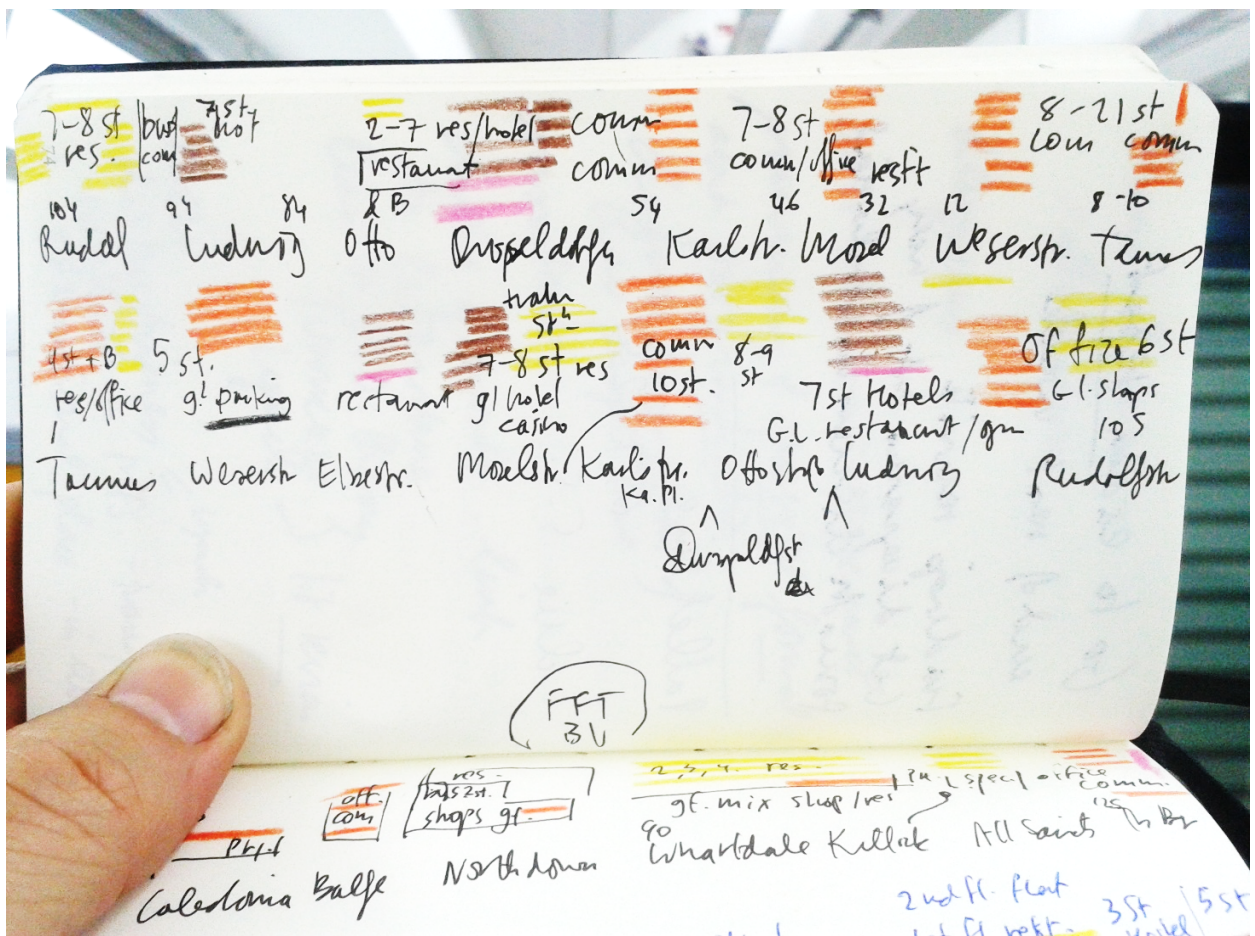 7-8 st
res.
7 st.
hot
2-7 res/hotel
restaurat
& B
comm
comm
7-8 st
comm/office restt
8-21 st
com comm
104 94 84 54 46 32 12 8-10
Ludwig Otto Karlstr. Mosel Weserstr. Taunus
1 st + B
res/office
5 st.
gl parking
restaurat
train
st
7-8 st res
gl hotel
casino
comm
10 st.
8-9
st
7 st Hotels
G.L. restaurant/gm
Office 6 st
G.l. shops
105
Taunus Weserstr Elbestr. Moselstr. Karlstr. Ottostr Ludwig Rudolfstr
Ka. Pl.
FFT
BV
off.
com
res.
shops gr.
2, 3, 4. res.
gf. mix shop/res
office
comm.
90
Caledonia Balfe Northdown Wharfdale Killick All Saints
2nd fl. flat
3 st
5 st